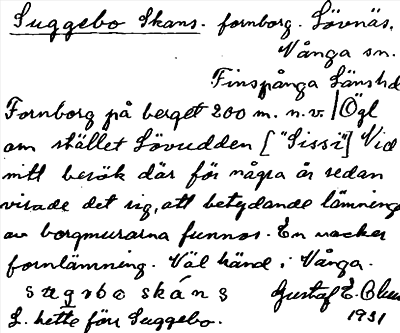 Suggebo Skans. fornborg. Lövnäs,
Vånga sn.
Finspånga länshd
Fornborg på berget 200 m. n.v. Ögl
om stället Lövudden ["Sissi"] Vid
mitt besök där för några år sedan
visade det sig, att betydande lämningar
av borgmurarna funnos. En vacker
fornlämning. Väl känd i Vånga.
skáns Gustaf E.
L. hette förr Suggebo. 1931